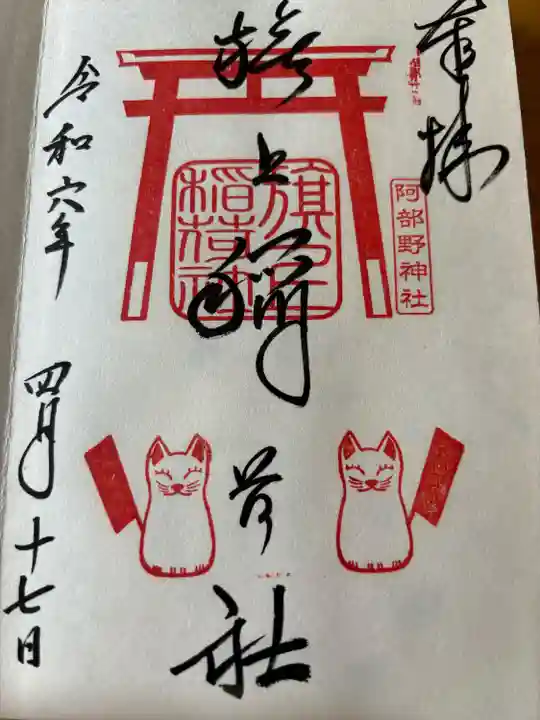 奉拝
阿部野神社
旗上稲荷社
旗上
稲荷社
令和六年
四月十七日